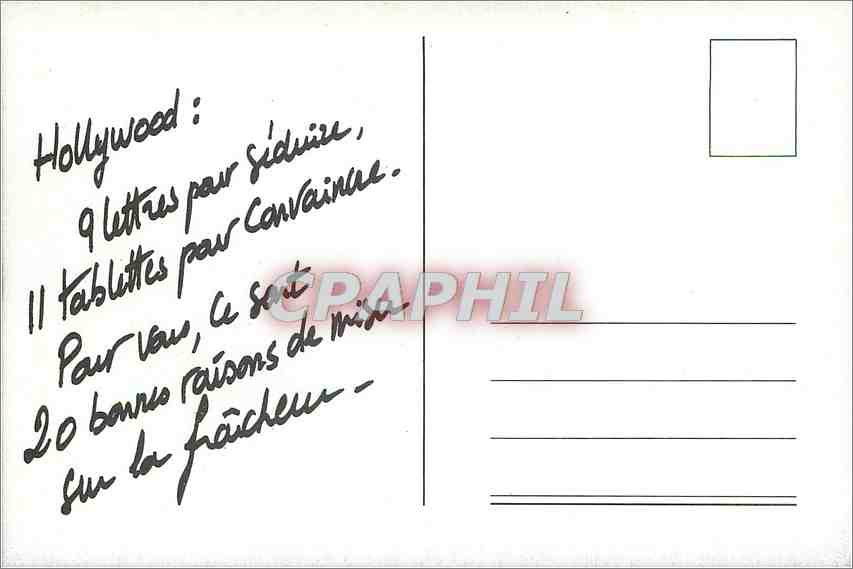 Hollywood :
9 lettres pour séduire,
11 tablettes pour convaincre.
Pour vous, ce sont
20 bonnes raisons de miser
sur la fraîcheur.
CPAPHIL